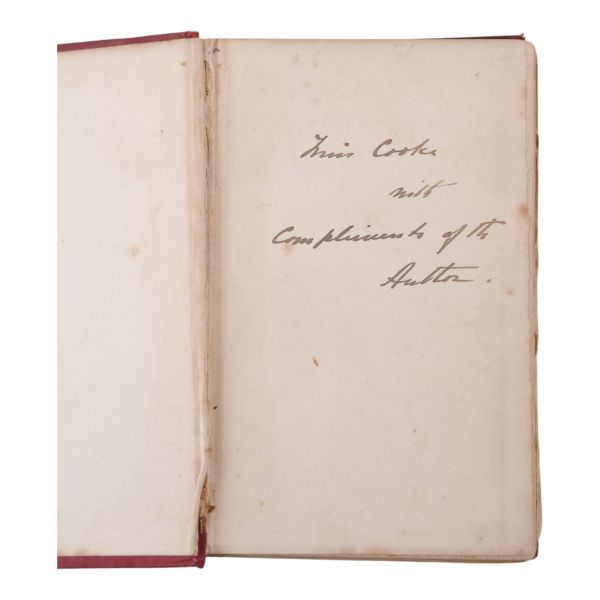 Miss Cooke
with
Compliments of the
Author.